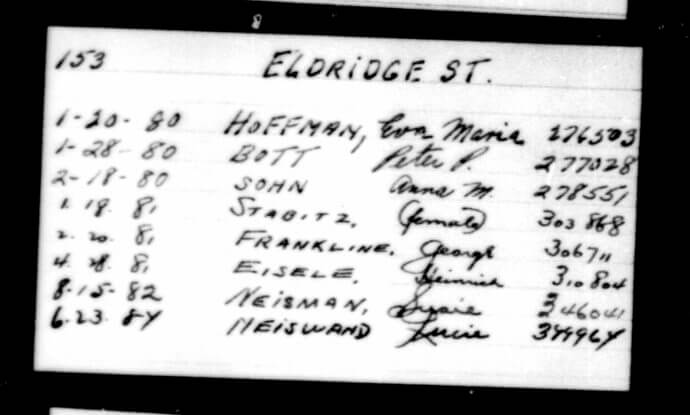 153 ELDRIDGE ST.
1-20-80 HOFFMAN, Eva Maria 276503
1-28-80 BOTT Peter P. 277028
2-18-80 SOHN Anna M. 278551
1.18.81 STABITZ, (female) 303868
2.20.81 FRANKLINE, George 306711
4.28.81 EISELE, Heinrich 310804
8-15-82 NEISMAN, 346041
6.23.84 NEISWAND Lucie